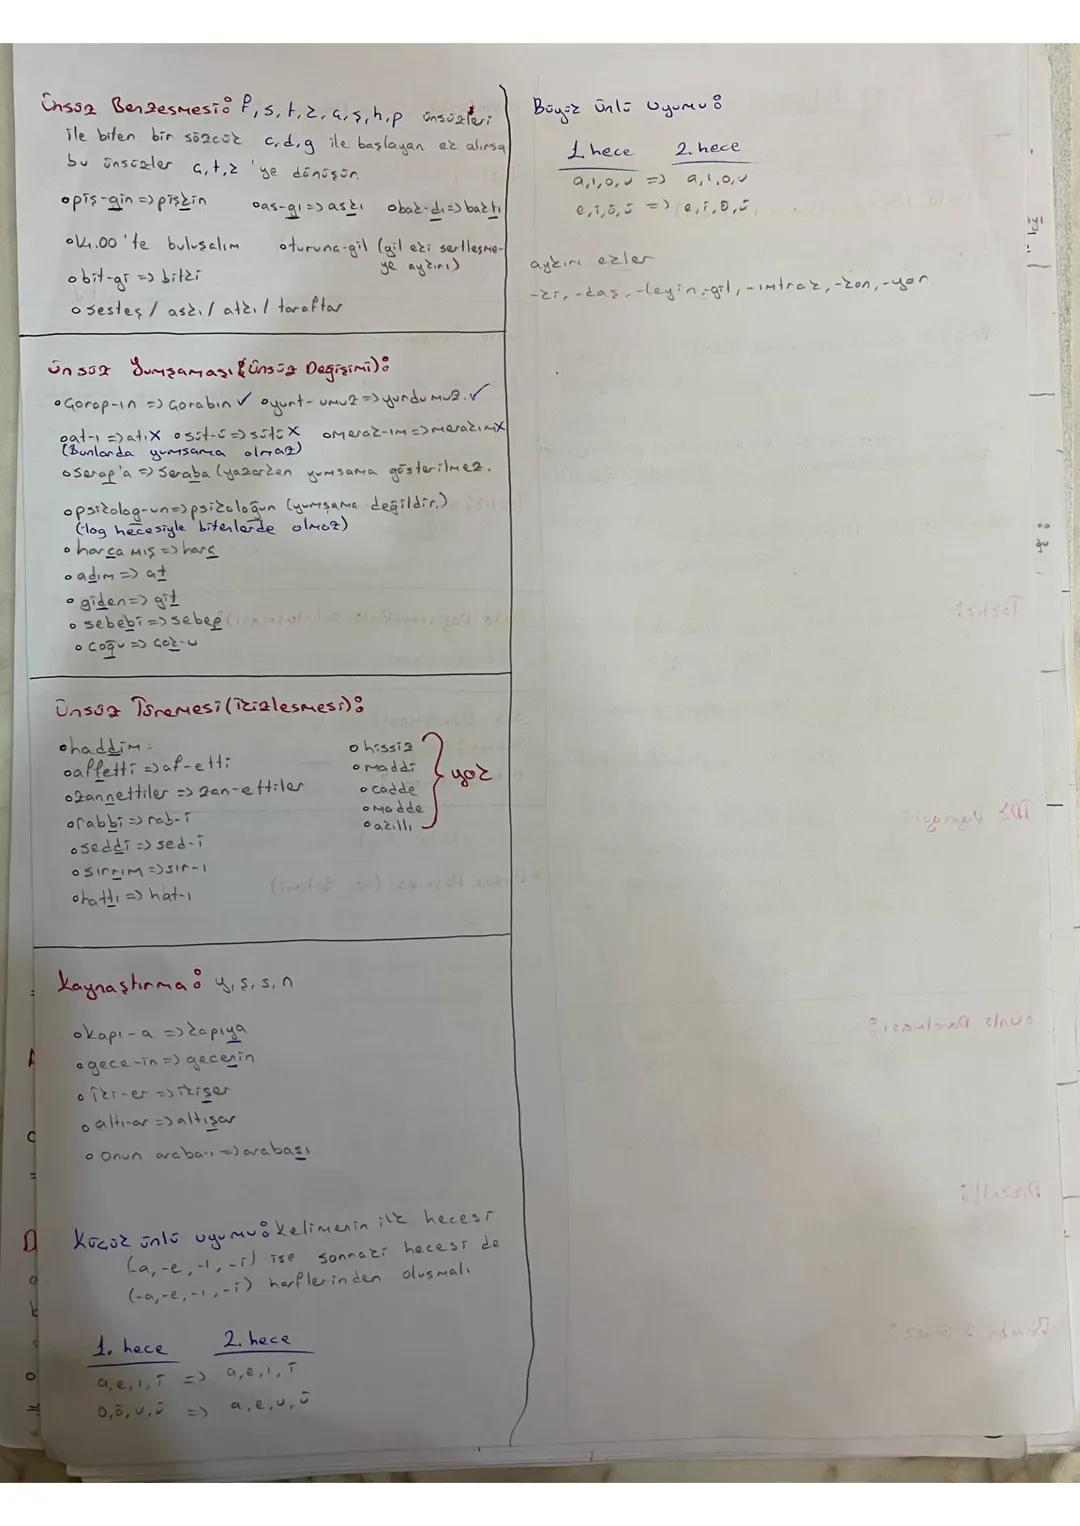 Ünsüz Benzeşmesi: f, s, t, k, ç, ş, h, p ünsüzleri
ile biten bir sözcük c, d, g ile başlayan ek alırsa
bu ünsüzler ç, t, k 'ye dönüşür.
• piş-gin => pişkin • as-gı => askı • bak-dı => baktı
• 14.00 'te buluşalım • turuna-gil (gil eki sertleşme-
ye aykırı)
• bit-gi => bitki
• sesteş / askı / atkı / taraftar
Ünsüz Yumşaması (Ünsüz Değişimi):
• Çorap-ın => Çorabın ✓ • yurt-umuz => yurdumuz. ✓
• at-ı => atı X • süt-ü => sütü X • merak-ım => merakım X
(Bunlarda yumşama olmaz)
• Serap'a => Seraba (yazarken yumşama gösterilmez.
• psikolog-un => psikoloğun (yumşama değildir.)
(-log hecesiyle bitenlerde olmaz)
• harca mış => harç
• adım => at
• giden => git
• sebebi => sebep
• çoğu => çok-u
Ünsüz Türemesi (ikizleşmesi):
• haddim:
• affetti => af-etti
• zannettiler => zan-ettiler
• rabbi => rab-i
• seddi => sed-i
• sırrım => sır-ı
• hattı => hat-ı
• hissiz
• maddi
• cadde
• madde
• akıllı
yok
Kaynaştırma: y, ş, s, n
• kapı-a => kapıya
• gece-in => gecenin
• iki-er => ikişer
• altı-ar => altışar
• Onun araba-ı => arabası
Küçük ünlü uyumu: kelimenin ilk hecesi
(-a, -e, -ı, -i) ise sonraki hecesi de
(-a, -e, -ı, -i) harflerinden oluşmalı
1. hece 2. hece
a, e, ı, i => a, e, ı, i
o, ö, u, ü => a, e, u, ü
Büyük ünlü Uyumu:
1. hece 2. hece
a, ı, o, u => a, ı, o, u
e, i, ö, ü => e, i, ö, ü
aykırı ekler
-ki, -daş, -leyin, -gil, -ımtrak, -ken, -yor